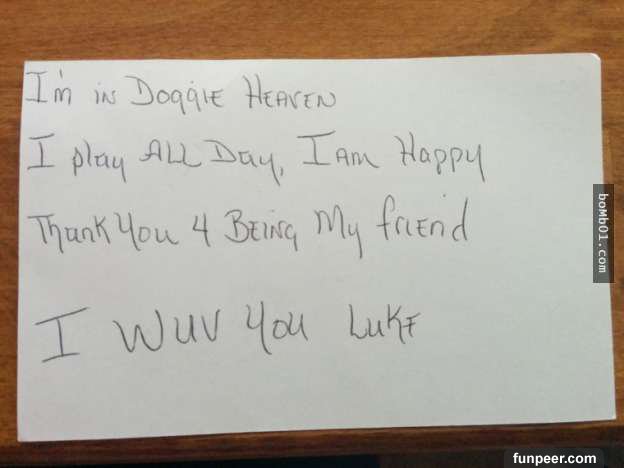 I'm in Doggie Heaven
I play All Day, I Am Happy
Thank You 4 Being My friend
I Wuv You Luke
boMb01.com
funpeer.com